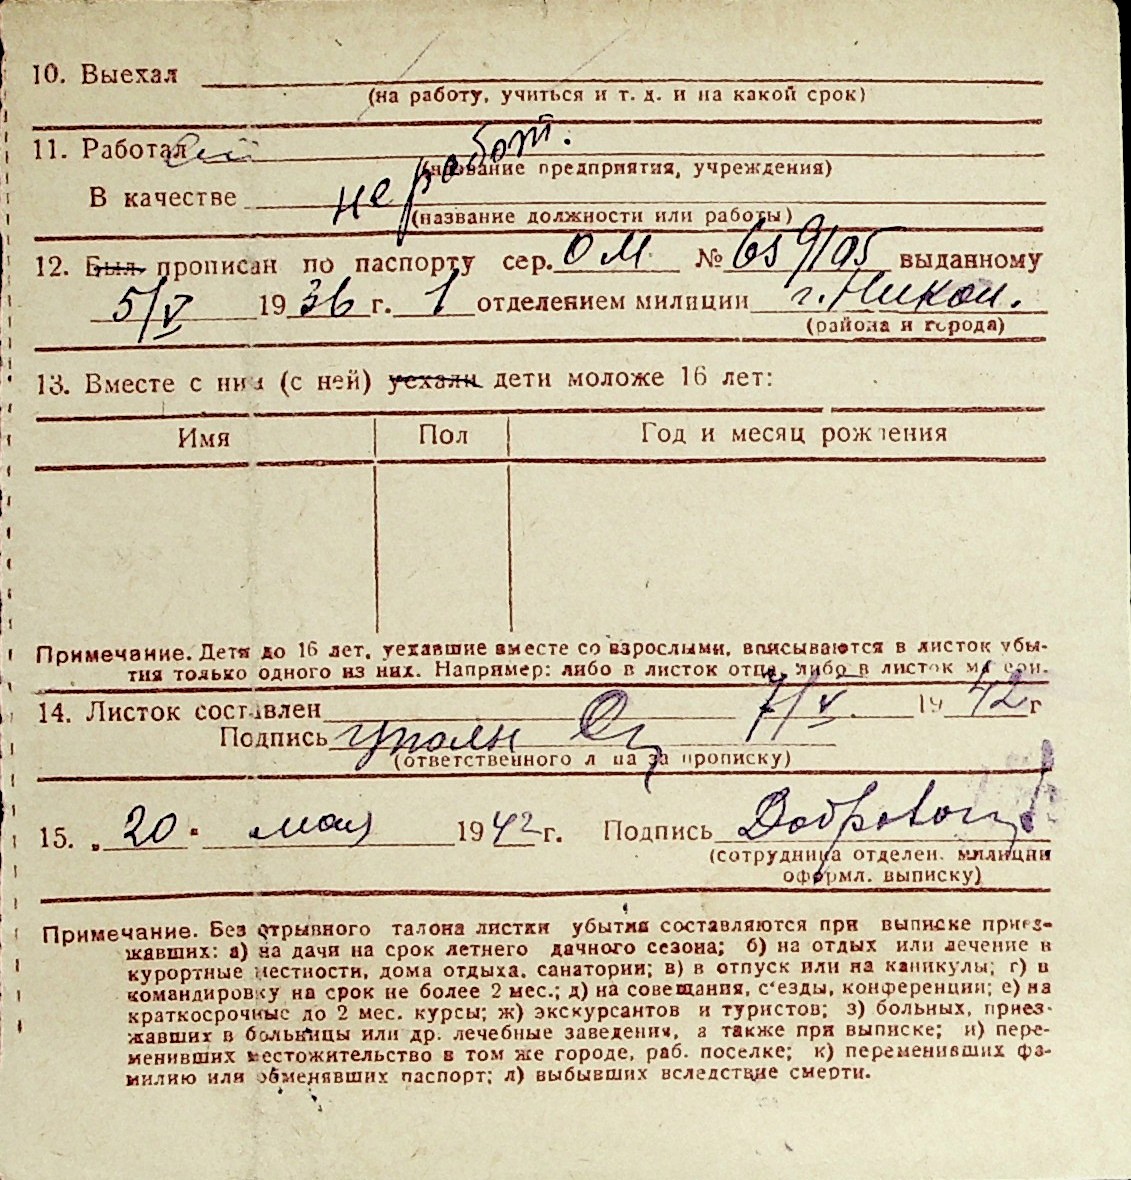 10. Выехал
(на работу, учиться и т. д. и на какой срок)
11. Работал
не работ.
(название предприятия, учреждения)
В качестве
(название должности или работы)
12. Был прописан по паспорту сер. ОМ № 659195 выданному
5/V 1936 г. 1 отделением милиции г. Никол.
(района и города)
13. Вместе с ним (с ней) уехали дети моложе 16 лет:
Имя Пол Год и месяц рождения
Примечание. Дети до 16 лет, уехавшие вместе со взрослыми, вписываются в листок убы-
тия только одного из них. Например: либо в листок отца, либо в листок матери.
14. Листок составлен 7/V 1942 г
Подпись
(ответственного лица за прописку)
15. „20" мая 1942 г. Подпись
(сотрудника отделен. милиции
оформл. выписку)
Примечание. Без отрывного талона листки убытия составляются при выписке приез-
жавших: а) на дачи на срок летнего дачного сезона; б) на отдых или лечение в
курортные местности, дома отдыха, санатории; в) в отпуск или на каникулы; г) в
командировку на срок не более 2 мес.; д) на совещания, с'езды, конференции; е) на
краткосрочные до 2 мес. курсы; ж) экскурсантов и туристов; з) больных, приез-
жавших в больницы или др. лечебные заведения, а также при выписке; и) пере-
менивших местожительство в том же городе, раб. поселке; к) переменивших фа-
милию или обменявших паспорт; л) выбывших вследствие смерти.